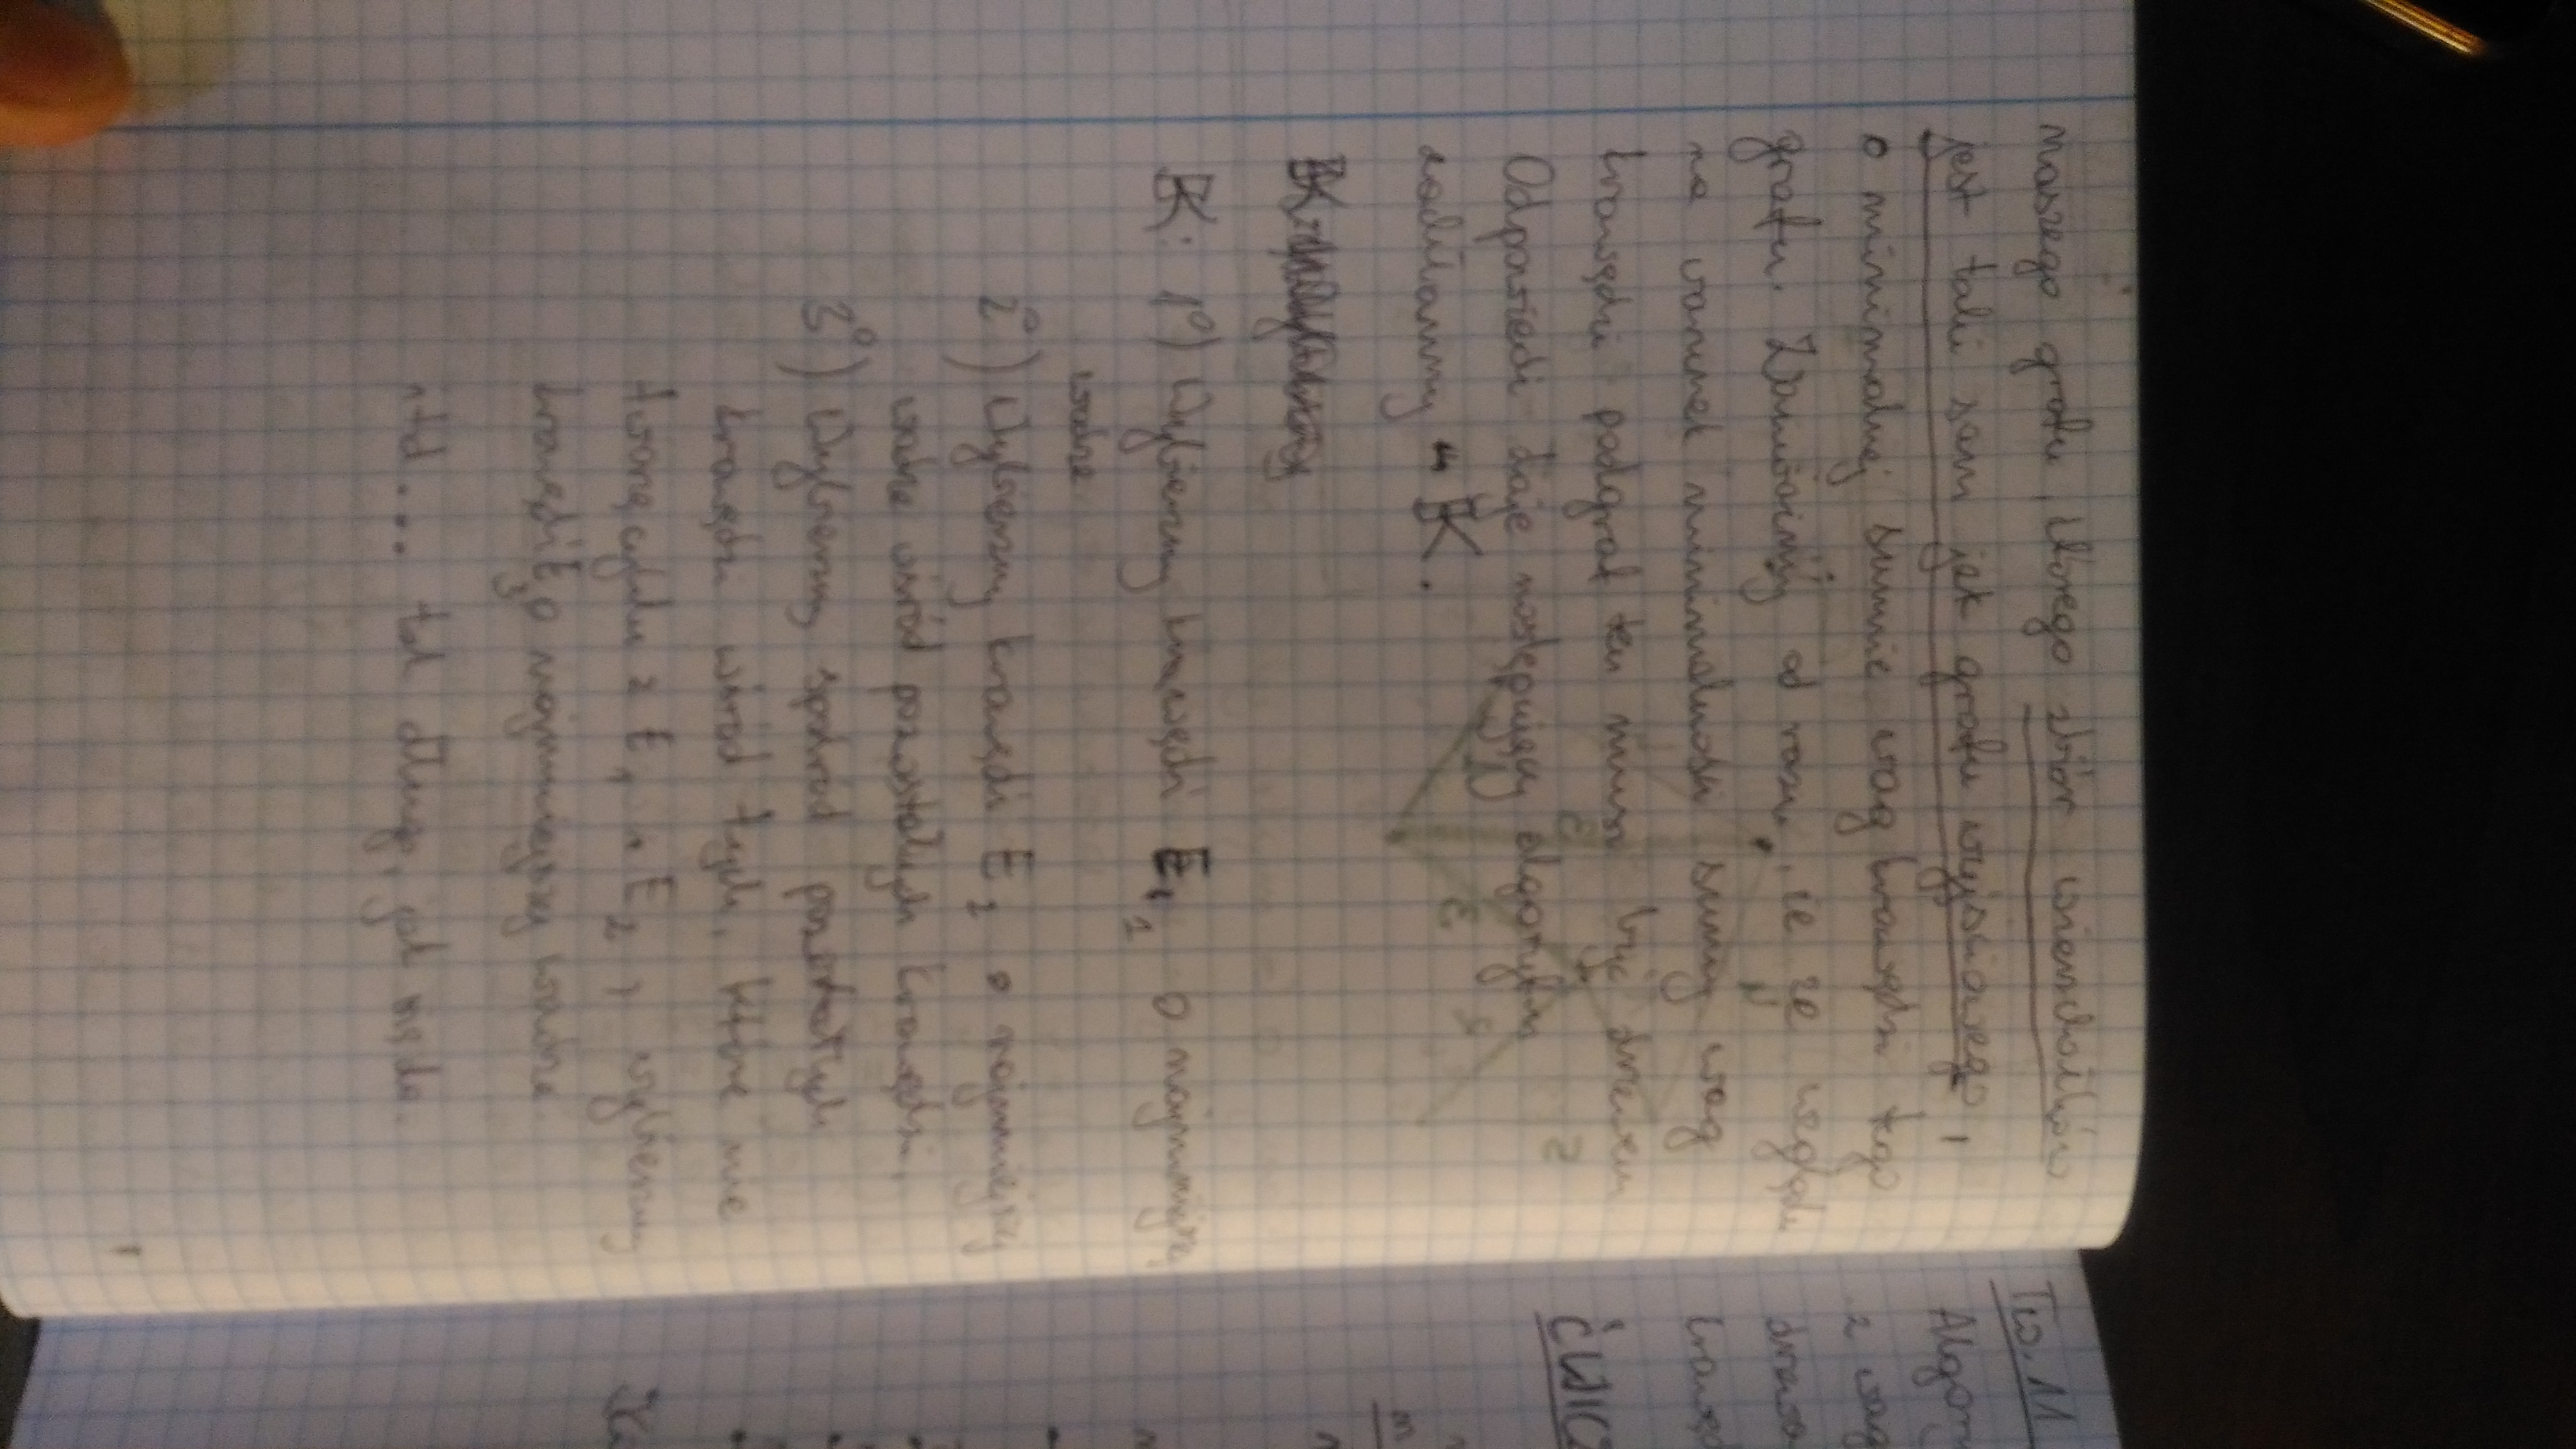 naszego grafu, którego zbiór wierzchołków
jest taki sam jak grafu wyjściowego,
o minimalnej sumie wag krawędzi tego
grafu. Zauważmy od razu, że ze względu
na warunek minimalności sumy wag
krawędzi podgraf ten musi być drzewem
Odpowiedź daje następujący algorytm
zachłanny - K.
K: 1°) Wybierzmy krawędź E₁ o najmniejszej
wadze
2°) Wybierzmy krawędź E₂ o najmniejszej
wadze wśród pozostałych krawędzi.
3°) Wybierzmy spośród pozostałych
krawędzi wśród tych, które nie
tworzą cyklu z E₁ i E₂, wybierzmy
krawędź E₃ o najmniejszej wadze
itd... tak długo, jak się da.
Tw. 11
Algory
z wag
drzewo
krawęd
ĆWICZ